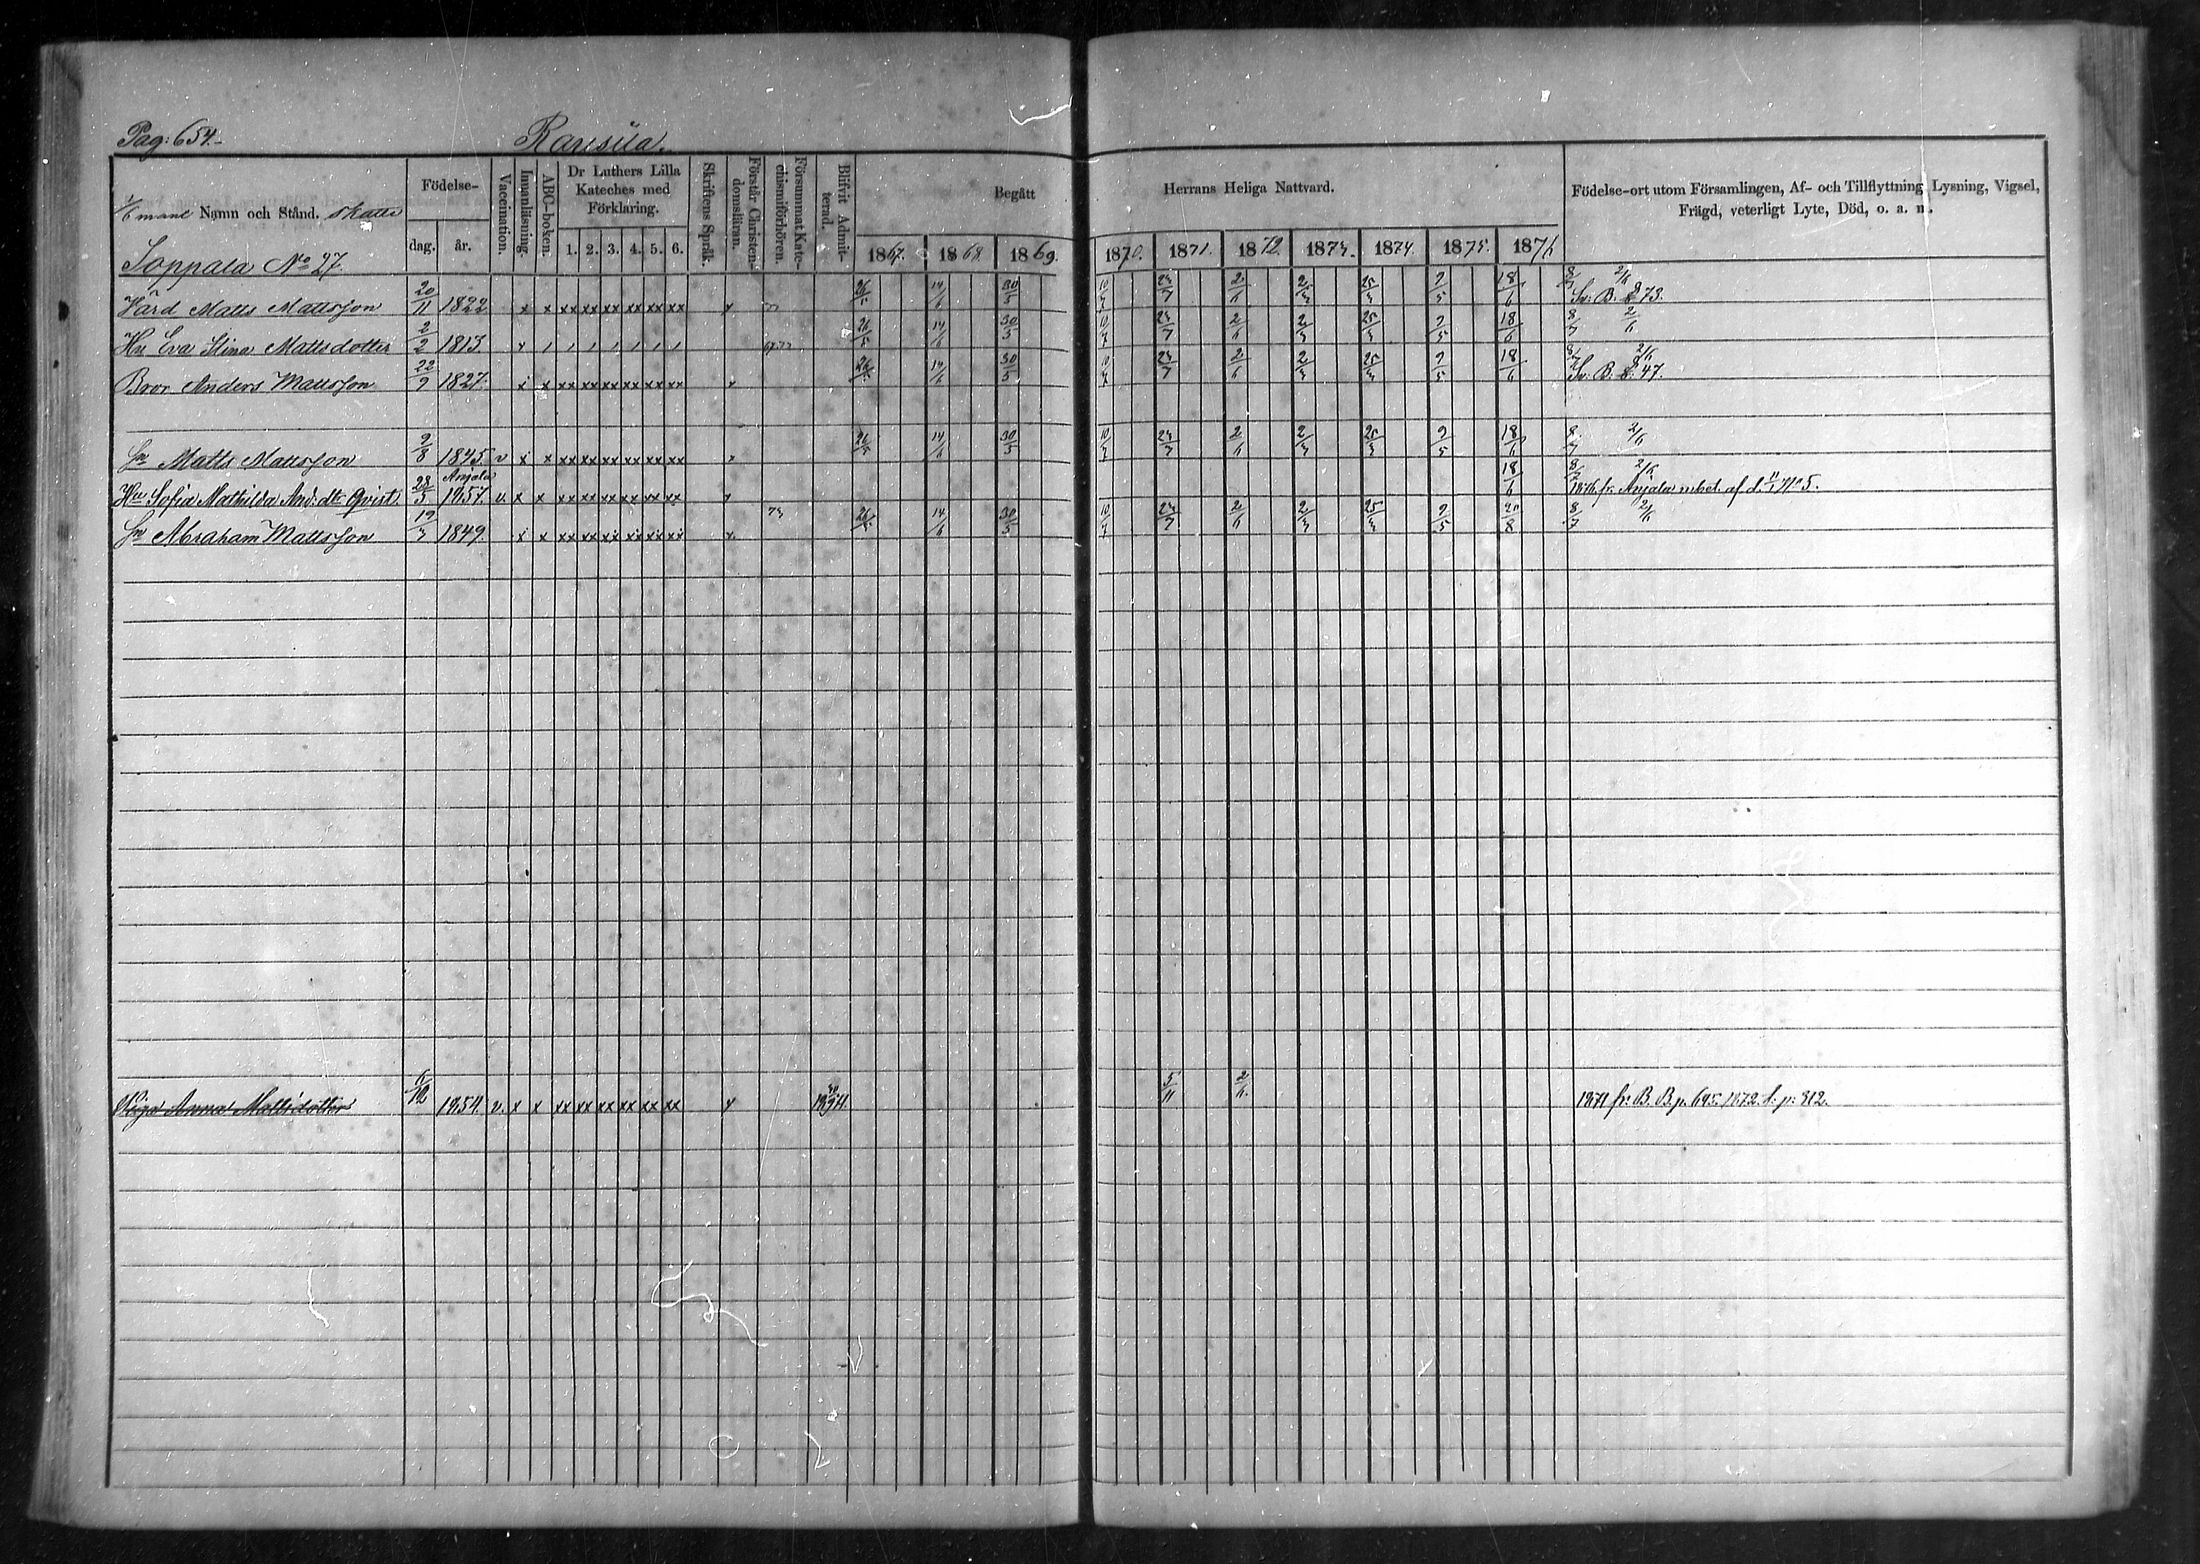 Pag: 654.
Födelse-
Vaccination.
Innanläsning.
ABC-boken.
Dr Luthers Lilla
Kateches med
Förklaring.
Skriftens Språk.
Förstår Christen-
domsläran.
Försummat Kate-
chismiförhören.
Blifvit Admit-
terad.
Begått Herrans Heliga Nattvard.
Födelse-ort utom Församlingen, Af- och Tillflyttning, Lysning, Vigsel,
Frägd, veterligt Lyte, Död, o. a. m.
Namn och Stånd.
dag. år. 1. 2. 3. 4. 5. 6. 1867. 1868 1869. 1870. 1871. 1872. 1873. 1874. 1875. 1876
Soppala No 27.
Värd Matts Mattsson 20/11 1822 x x xx xx xx xx xx xx x 26/5 14/6 30/5 10/7 23/7 2/6 2/3 25/3 9/5 18/6 8/7 2/6 73.
Hu Eva Stina Mattsdotter 2/2 1813. 26/5 14/6 30/5 10/7 23/7 2/6 2/3 25/3 9/5 18/6 8/7 2/6
Bror Anders Mattsson 22/9 1827. x x xx xx xx xx xx xx x 26/5 14/6 30/5 10/7 23/7 2/6 2/3 25/3 9/5 18/6 8/7 2/6 47.
Sn Matts Mattsson 9/8 1845 v x x xx xx xx xx xx xx x 26/5 14/6 30/5 10/7 23/7 2/6 2/3 25/3 9/5 18/6 8/7 2/6
Anjala
Hu Sofia Mathilda And. dtr Qvist. 28/5 1857. v. x x xx xx xx xx xx xx x 18/6 8/7 2/6 1876 fr. Anjala
Sn Abraham Mattsson 19/3 1849. x x xx xx xx xx xx xx x 73 26/5 14/6 30/5 10/7 23/7 2/6 2/3 25/3 9/5 20/8 8/7 2/6
Piga Anna Mattsdotter 6/12 1854 v. x x xx xx xx xx xx xx x 5/11 2/6 1871 fr. B. B. p. 695. 1872. t. p. 812.